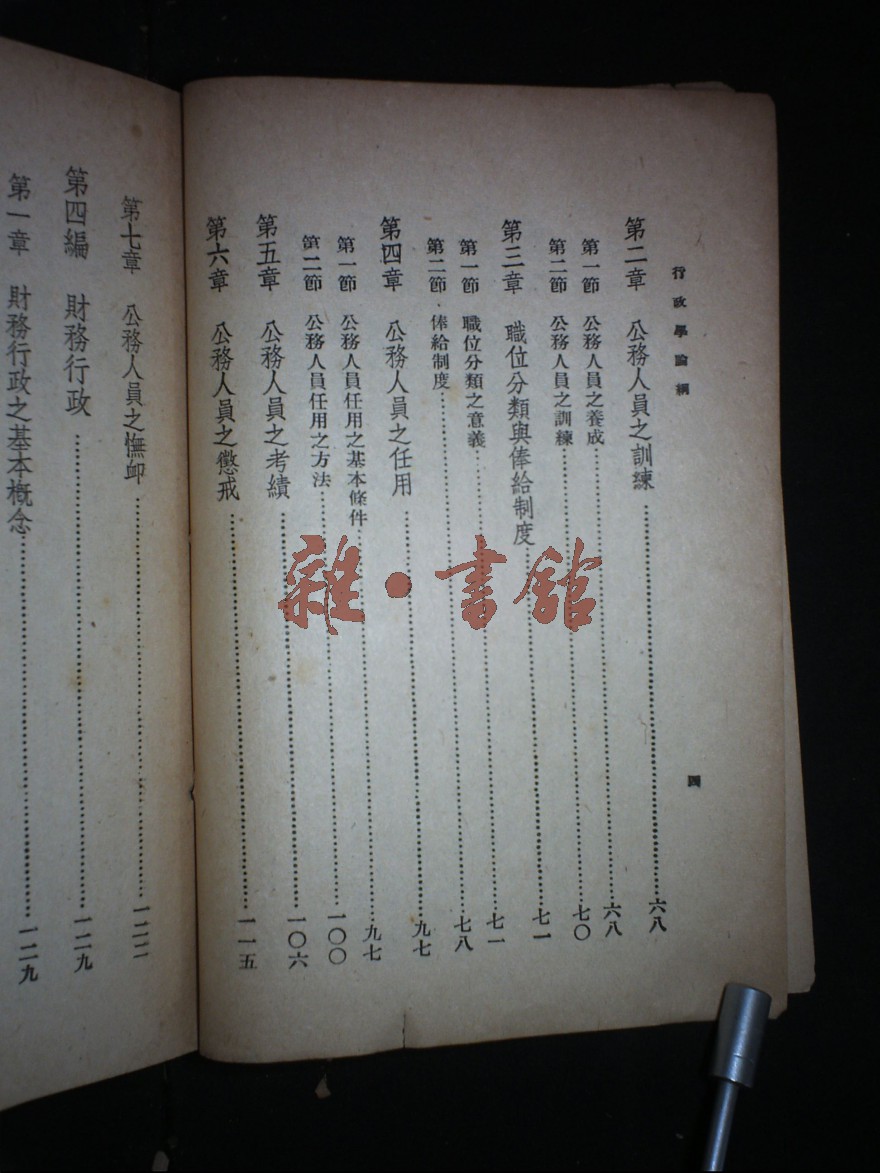 行政學論綱
四
第二章　公務人員之訓練……六八
第一節　公務人員之養成……六八
第二節　公務人員之訓練……七〇
第三章　職位分類與俸給制度……七一
第一節　職位分類之意義……七一
第二節　俸給制度……七八
第四章　公務人員之任用……九七
第一節　公務人員任用之基本條件……九七
第二節　公務人員任用之方法……一〇〇
第五章　公務人員之考績……一〇六
第六章　公務人員之懲戒……一一五
第七章　公務人員之憮卹……一二二
第四編　財務行政……一二九
第一章　財務行政之基本概念……一二九
雜・書館